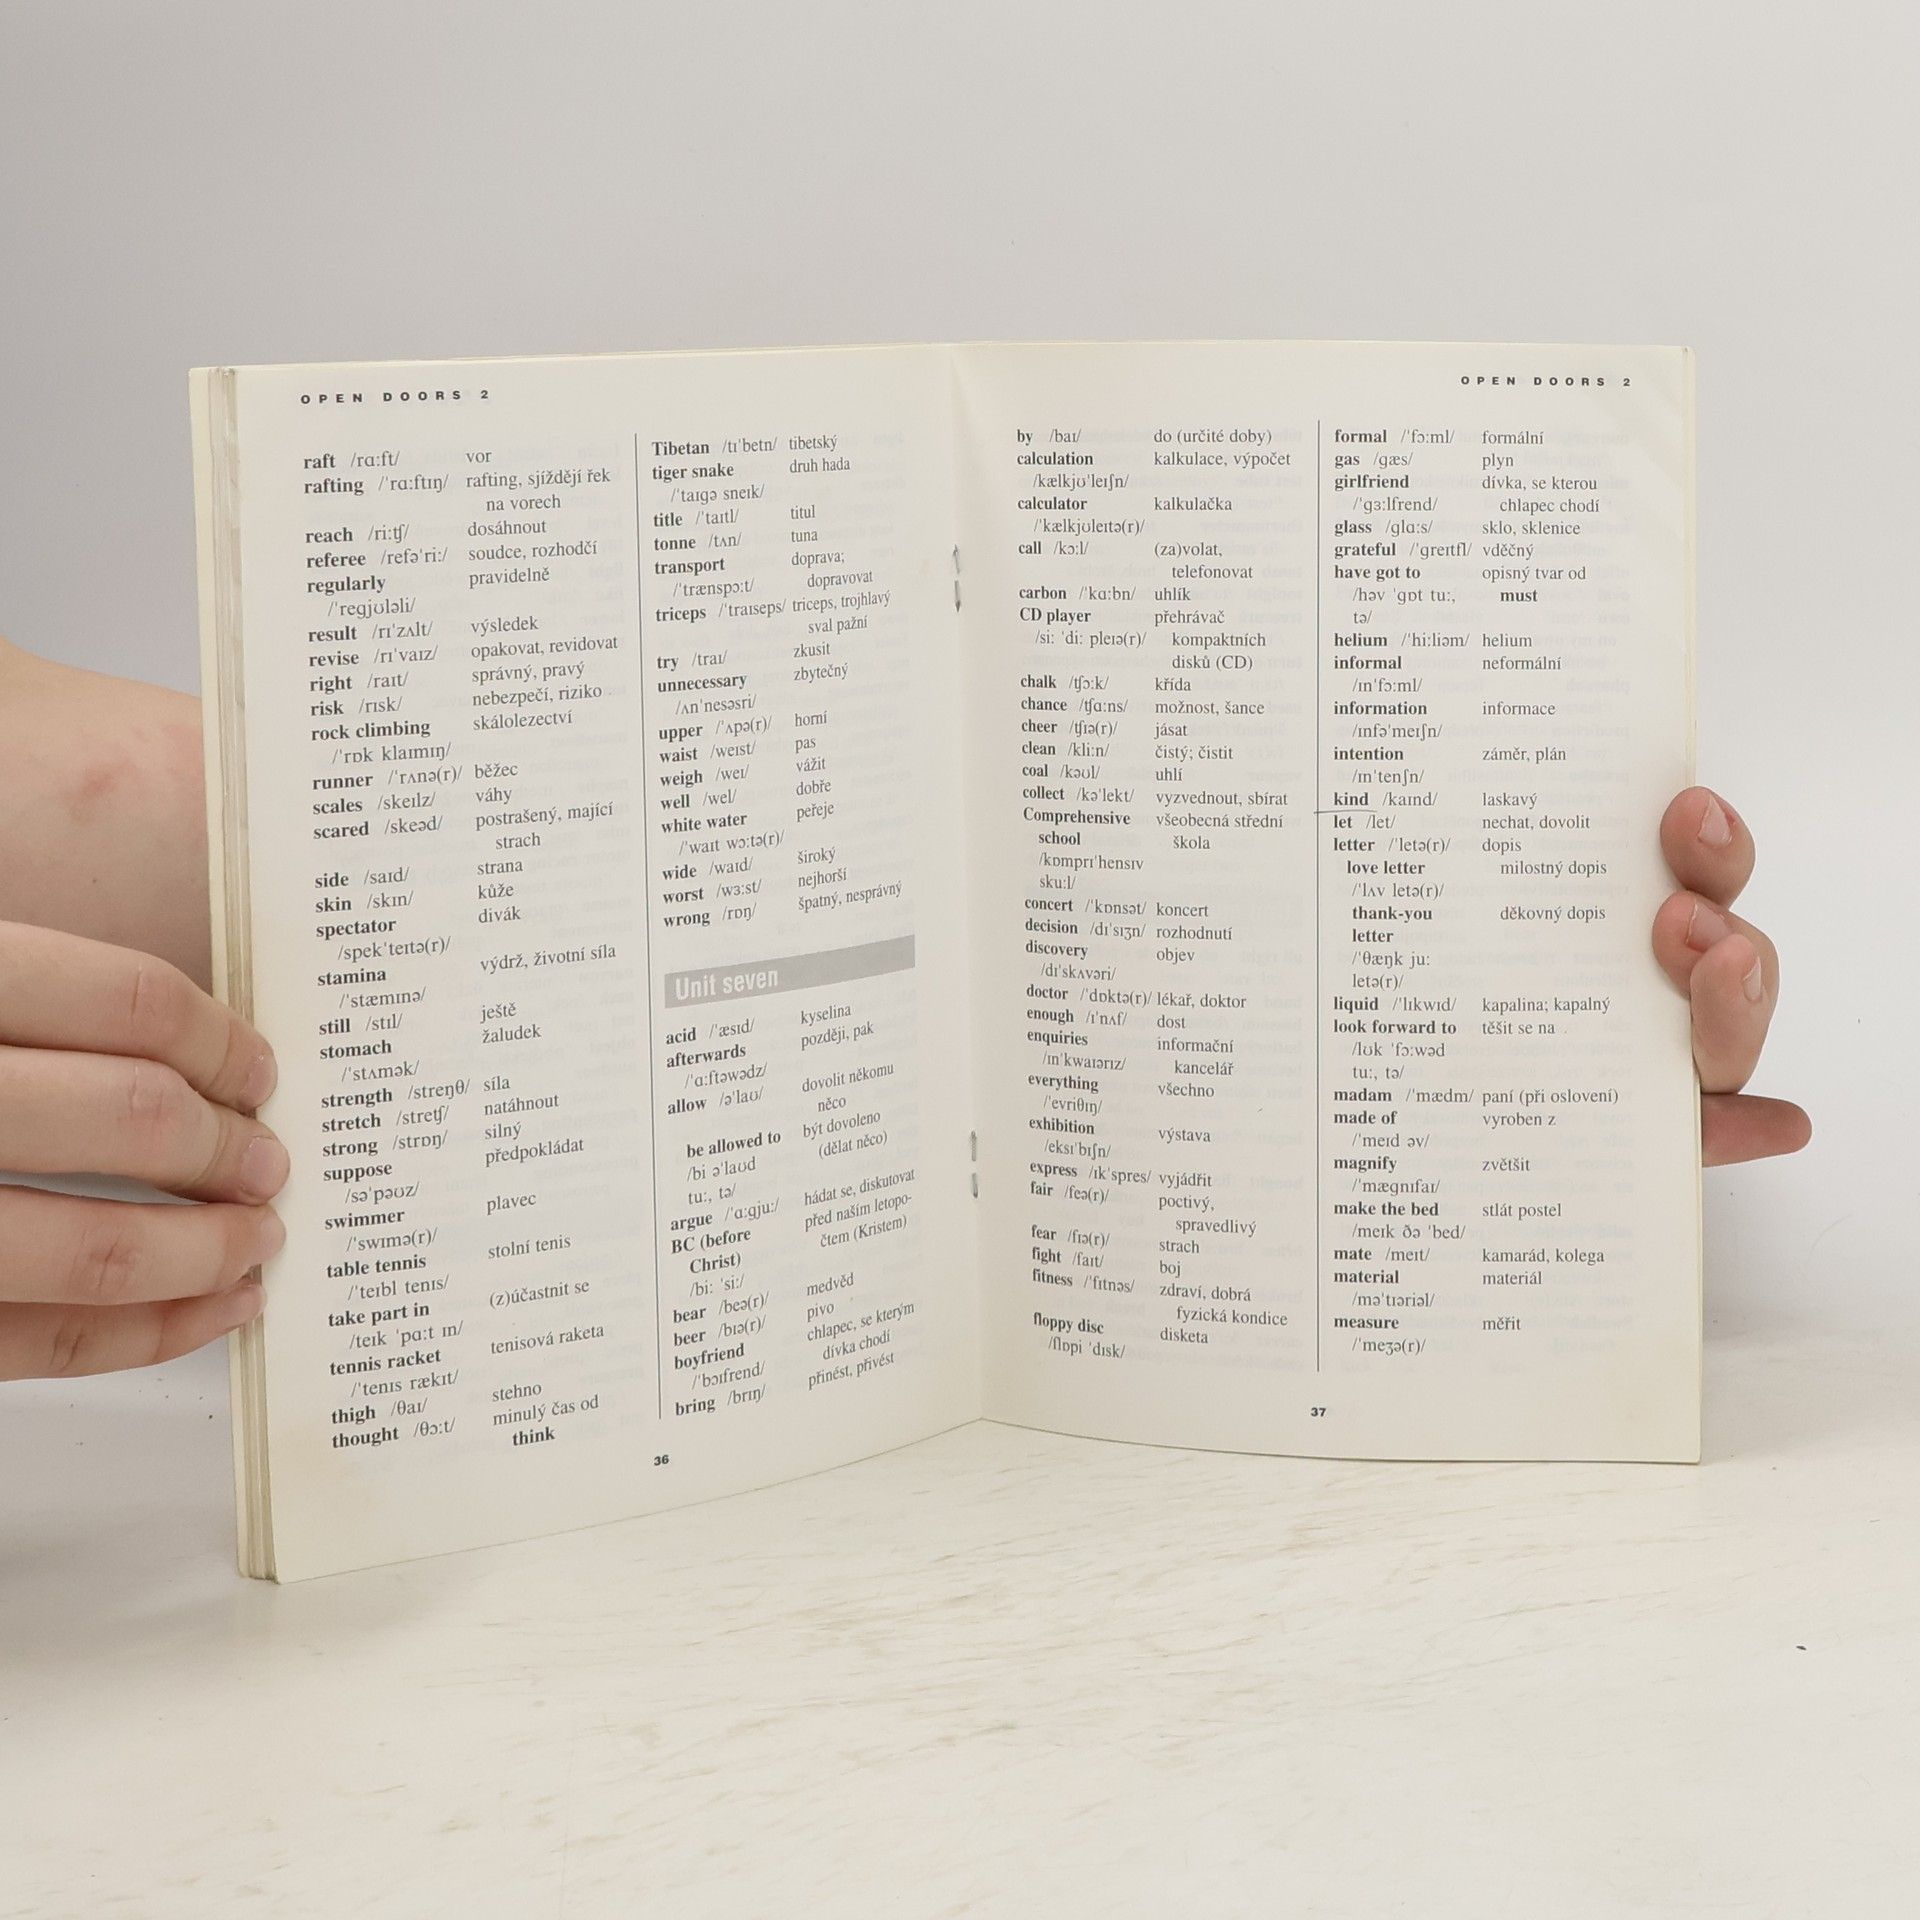 OPEN DOORS 2
raft /rɑːft/ vor
rafting /ˈrɑːftɪŋ/ rafting, sjíždějí řek
na vorech
reach /riːʧ/ dosáhnout
referee /refəˈriː/ soudce, rozhodčí
regularly pravidelně
/ˈreɡjʊləli/
result /rɪˈzʌlt/ výsledek
revise /rɪˈvaɪz/ opakovat, revidovat
right /raɪt/ správný, pravý
risk /rɪsk/ nebezpečí, riziko
rock climbing skálolezectví
/ˈrɒk klaɪmɪŋ/
runner /ˈrʌnə(r)/ běžec
scales /skeɪlz/ váhy
scared /skeəd/ postrašený, mající
strach
side /saɪd/ strana
skin /skɪn/ kůže
spectator divák
/spekˈteɪtə(r)/
stamina výdrž, životní síla
/ˈstæmɪnə/
still /stɪl/ ještě
stomach žaludek
/ˈstʌmək/
strength /streŋθ/ síla
stretch /streʧ/ natáhnout
strong /strɒŋ/ silný
suppose předpokládat
/səˈpəʊz/
swimmer plavec
/ˈswɪmə(r)/
table tennis stolní tenis
/ˈteɪbl tenɪs/
take part in (z)účastnit se
/teɪk ˈpɑːt ɪn/
tennis racket tenisová raketa
/ˈtenɪs rækɪt/
thigh /θaɪ/ stehno
thought /θɔːt/ minulý čas od
think
Tibetan /tɪˈbetn/ tibetský
tiger snake druh hada
/ˈtaɪɡə sneɪk/
title /ˈtaɪtl/ titul
tonne /tʌn/ tuna
transport doprava;
/ˈtrænspɔːt/ dopravovat
triceps /ˈtraɪseps/ triceps, trojhlavý
sval pažní
try /traɪ/ zkusit
unnecessary zbytečný
/ʌnˈnesəsri/
upper /ˈʌpə(r)/ horní
waist /weɪst/ pas
weigh /weɪ/ vážit
well /wel/ dobře
white water peřeje
/ˈwaɪt wɔːtə(r)/
wide /waɪd/ široký
worst /wɜːst/ nejhorší
wrong /rɒŋ/ špatný, nesprávný
Unit seven
acid /ˈæsɪd/ kyselina
afterwards později, pak
/ˈɑːftəwədz/
allow /əˈlaʊ/ dovolit někomu
něco
be allowed to být dovoleno
/bi əˈlaʊd (dělat něco)
tuː, tə/
argue /ˈɑːɡjuː/ hádat se, diskutovat
BC (before před naším letopo-
Christ) čtem (Kristem)
/biː ˈsiː/
bear /beə(r)/ medvěd
beer /bɪə(r)/ pivo
boyfriend chlapec, se kterým
/ˈbɔɪfrend/ dívka chodí
bring /brɪŋ/ přinést, přivést
36
OPEN DOORS 2
by /baɪ/ do (určité doby)
calculation kalkulace, výpočet
/kælkjʊˈleɪʃn/
calculator kalkulačka
/ˈkælkjʊleɪtə(r)/
call /kɔːl/ (za)volat,
telefonovat
carbon /ˈkɑːbn/ uhlík
CD player přehrávač
/siː ˈdiː pleɪə(r)/ kompaktních
disků (CD)
chalk /ʧɔːk/ křída
chance /ʧɑːns/ možnost, šance
cheer /ʧɪə(r)/ jásat
clean /kliːn/ čistý; čistit
coal /kəʊl/ uhlí
collect /kəˈlekt/ vyzvednout, sbírat
Comprehensive všeobecná střední
school škola
/kɒmprɪˈhensɪv
skuːl/
concert /ˈkɒnsət/ koncert
decision /dɪˈsɪʒn/ rozhodnutí
discovery objev
/dɪˈskʌvəri/
doctor /ˈdɒktə(r)/ lékař, doktor
enough /ɪˈnʌf/ dost
enquiries informační
/ɪnˈkwaɪərɪz/ kancelář
everything všechno
/ˈevriθɪŋ/
exhibition výstava
/eksɪˈbɪʃn/
express /ɪkˈspres/ vyjádřit
fair /feə(r)/ poctivý,
spravedlivý
fear /fɪə(r)/ strach
fight /faɪt/ boj
fitness /ˈfɪtnəs/ zdraví, dobrá
fyzická kondice
floppy disc disketa
/flɒpi ˈdɪsk/
formal /ˈfɔːml/ formální
gas /ɡæs/ plyn
girlfriend dívka, se kterou
/ˈɡɜːlfrend/ chlapec chodí
glass /ɡlɑːs/ sklo, sklenice
grateful /ˈɡreɪtfl/ vděčný
have got to opisný tvar od
/həv ˈɡɒt tuː, must
tə/
helium /ˈhiːliəm/ helium
informal neformální
/ɪnˈfɔːml/
information informace
/ɪnfəˈmeɪʃn/
intention záměr, plán
/ɪnˈtenʃn/
kind /kaɪnd/ laskavý
let /let/ nechat, dovolit
letter /ˈletə(r)/ dopis
love letter milostný dopis
/ˈlʌv letə(r)/
thank-you děkovný dopis
letter
/ˈθæŋk juː
letə(r)/
liquid /ˈlɪkwɪd/ kapalina; kapalný
look forward to těšit se na
/lʊk ˈfɔːwəd
tuː, tə/
madam /ˈmædm/ paní (při oslovení)
made of vyroben z
/ˈmeɪd əv/
magnify zvětšit
/ˈmæɡnɪfaɪ/
make the bed stlát postel
/meɪk ðə ˈbed/
mate /meɪt/ kamarád, kolega
material materiál
/məˈtɪəriəl/
measure měřit
/ˈmeʒə(r)/
37